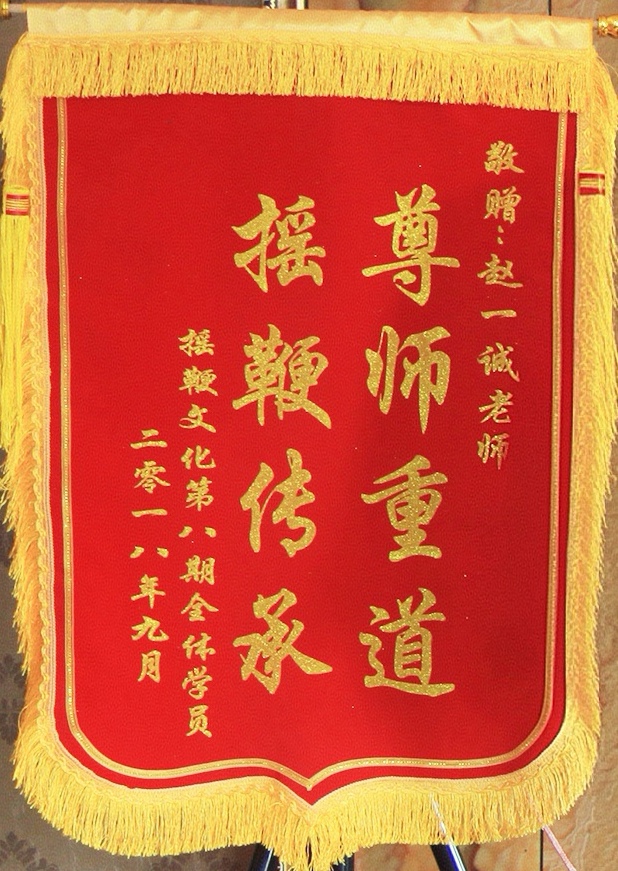 敬赠：赵一诚老师
尊师重道
摇鞭传承
摇鞭文化第八期全体学员
二零一八年九月